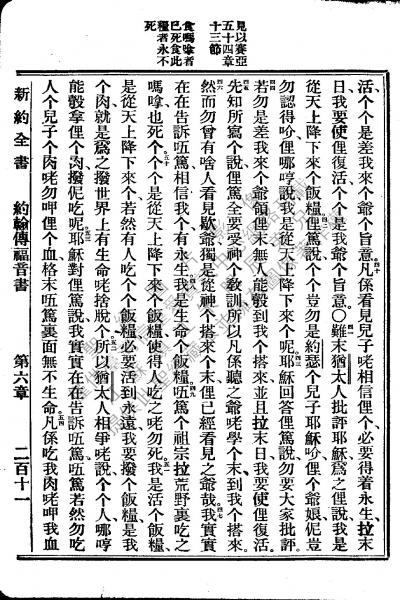 見以賽亞
五十四章
十三節
食嗎嗱者
已死食此
糧者永不
死
活个个是差我來个爺个旨意凡係看見兒子咾相信俚个必要得着永生拉末
日我要使俚復活个个是我爺个旨意〇難末猶太人批評耶穌爲之俚說我是
從天上降下來个飯糧俚篤說个个豈勿是約瑟个兒子耶穌吩俚个爺娘伲豈
勿認得吩俚哪哼說我是從天上降下來个呢耶穌回答俚篤說勿要大家批評
若勿是差我來个爺領俚末無人能彀到我个搭來並且拉末日我要使俚復活
先知所寫个說俚篤全要受神个敎訓所以凡係聽之爺咾學个末到我个搭來
然而勿曾有啥人看見歇爺獨是從神个搭來个末俚已經看見之爺哉我實實
在在告訴伍篤相信我个有永生我是生命个飯糧伍篤个祖宗拉荒野裏吃之
嗎嗱也死个个是從天上降下來个飯糧使得人吃之咾勿死我是活个飯糧
是從天上降下來个若然有人吃个个飯糧必要活到永遠我要撥个飯糧是我
个肉就是爲之撥世界上有生命咾捨脫个所以猶太人相爭咾說个个人哪哼
能彀拿俚个肉撥伲吃呢耶穌對俚篤說我實實在在告訴伍篤伍篤若然勿吃
人个兒子个肉咾勿呷俚个血格末伍篤裏面無不生命凡係吃我肉咾呷我血
新約全書 約翰傳福音書 第六章 二百十一